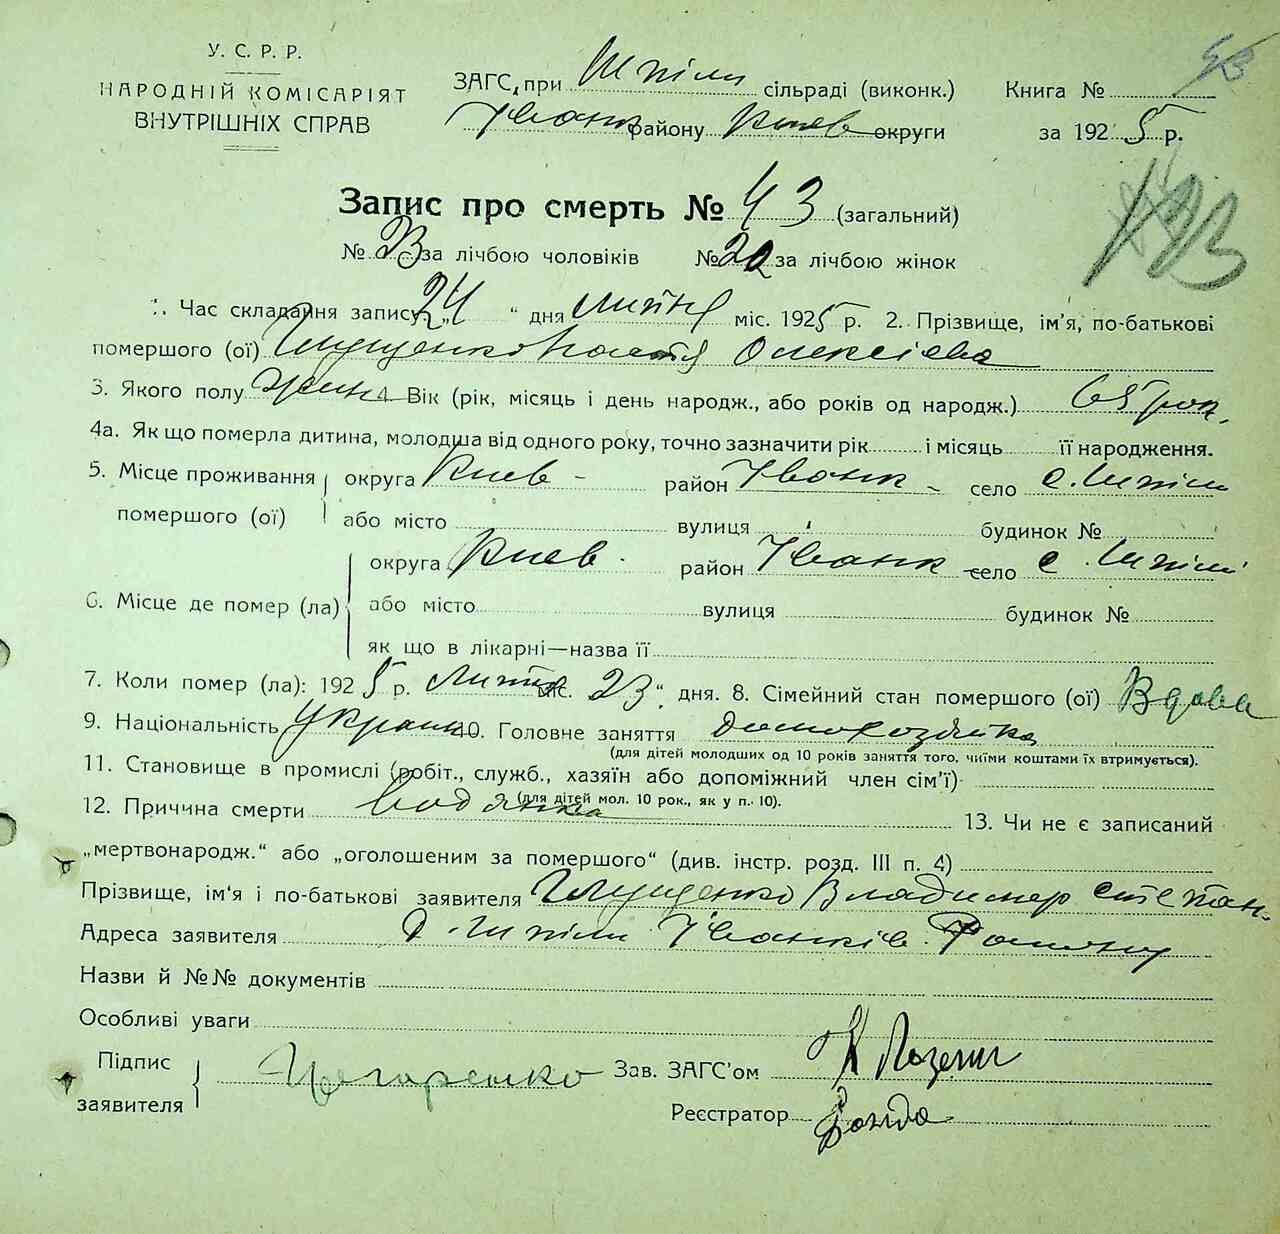 У. С. Р. Р.
НАРОДНІЙ КОМІСАРІЯТ
ВНУТРІШНІХ СПРАВ
ЗАГС, при Шпіли сільраді (виконк.)
Іванк району Киев округи
Книга №
за 1925 р.
43
Запис про смерть № 43 (загальний)
№ 23 за лічбою чоловіків № 20 за лічбою жінок
1. Час складання запису „24“ дня липня міс. 1925 р. 2. Прізвище, ім'я, по-батькові
помершого (ої) Олексіева
3. Якого полу жин 4. Вік (рік, місяць і день народж., або років од народж.) 65 рок.
4а. Як що померла дитина, молодша від одного року, точно зазначити рік і місяць її народження.
5. Місце проживання помершого (ої) округа Киев - район Іванк - село с. Шпілі
або місто вулиця будинок №
6. Місце де помер (ла) округа Киев. район Іванк село с. Шпілі
або місто вулиця будинок №
як що в лікарні—назва її
7. Коли помер (ла): 1925 р. Липня міс. 23 „ дня. 8. Сімейний стан помершого (ої) Вдова
9. Національність Украин 10. Головне заняття домохозяйка
(для дітей молодших од 10 років заняття того, чиїми коштами їх втримується).
11. Становище в промислі (робіт., служб., хазяїн або допоміжний член сім'ї)
(для дітей мол. 10 рок., як у п. 10).
12. Причина смерти водянка 13. Чи не є записаний
„мертвонародж.“ або „оголошеним за помершого“ (див. інстр. розд. III п. 4)
Прізвище, ім'я і по-батькові заявителя Владимер Степан.
Адреса заявителя Шпіли Іванків. Району
Назви й №№ документів
Особливі уваги
Підпис заявителя
Зав. ЗАГС'ом
Реєстратор